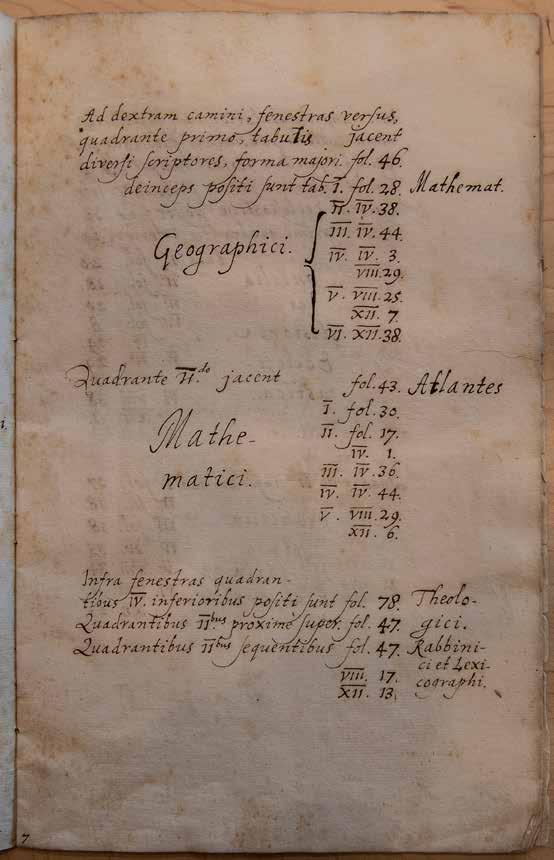 Ad dextram camini, fenestras versus,
quadrante primo, tabulis jacent
diversi scriptores, forma majori. fol. 46.
deinceps positi sunt tab. I. fol. 28. Mathemat.
II. IV. 38.
III. IV. 44.
Geographici. IV. IV. 3.
VIII. 29.
V. VIII. 25.
XII. 7.
VI. XII. 38.
Quadrante II.do jacent fol. 43. Atlantes
I. fol. 30.
Mathe- II. fol. 17.
IV. 1.
matici. III. IV. 36.
IV. IV. 44.
V. VIII. 29.
XII. 6.
Infra fenestras quadran-
tibus IV. inferioribus positi sunt fol. 78. Theolo-
Quadrantibus IIbus proxime super. fol. 47. gici.
Quadrantibus IIbus sequentibus fol. 47. Rabbini-
ci et Lexi-
VIII. 17. cographi.
XII. 13.
7